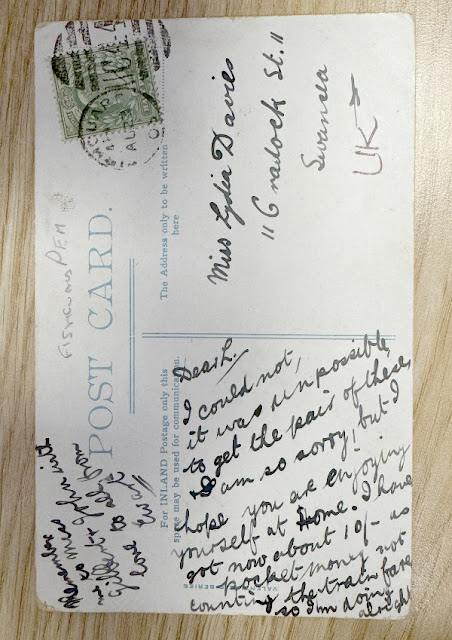 POST CARD.
FISHGUARD PEM
For INLAND Postage only this
space may be used for communication.
The Address only to be written
here
Miss Lydia Davies
11 Cradock St. 11
Swansea
UK
Dear L.
I could not,
it was unpossible
to get the pair of these,
I am so sorry, but I
hope you are enjoying
yourself at Home. I have
got now about 10/- as
pocket money not
counting the train fare
so I'm doing
alright
Remember
me to
Gilbert & self from
love Evan
SERIES